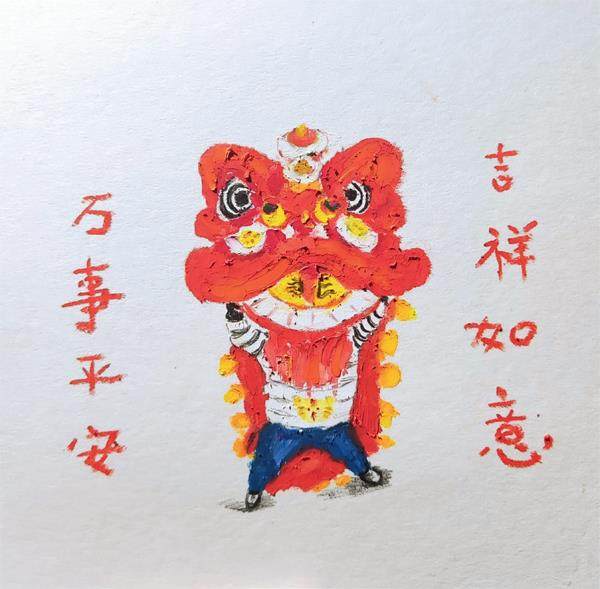 吉祥如意
万事平安